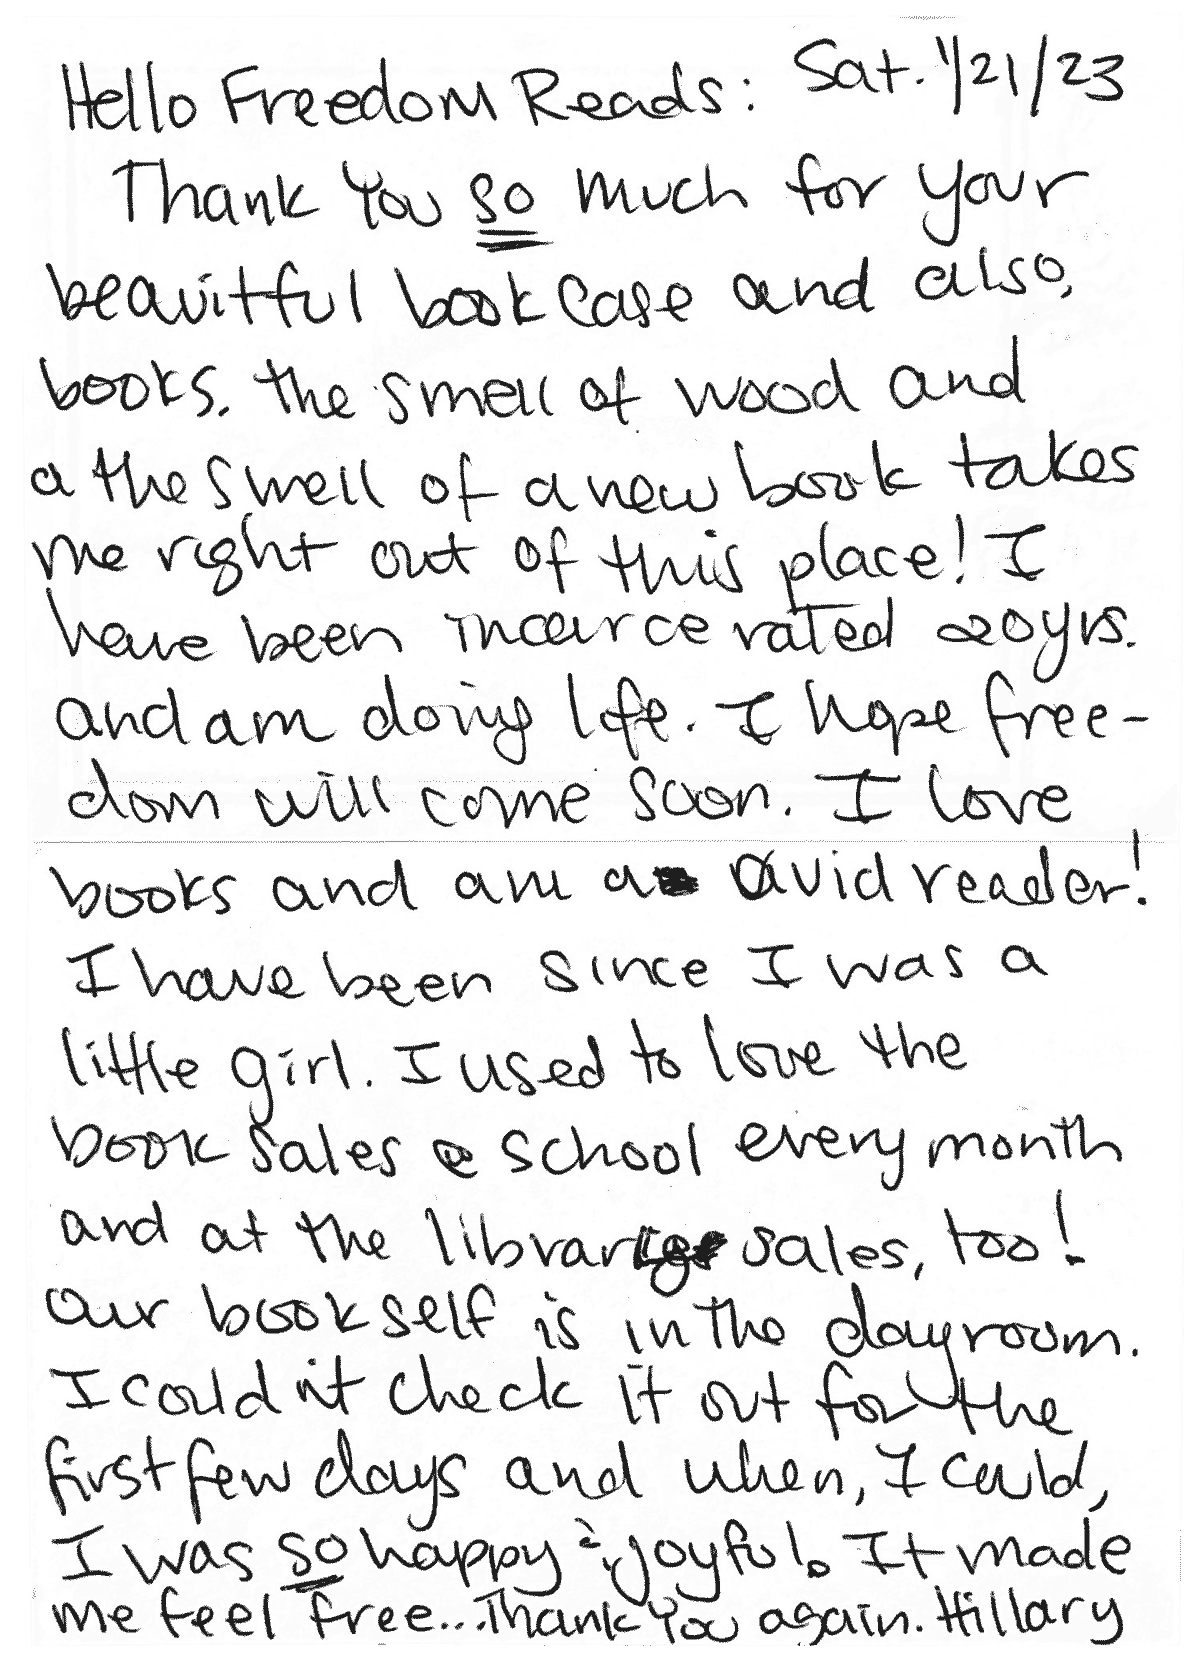 Hello Freedom Reads: Sat. 1/21/23
Thank You so much for your
beauitful bookcase and also,
books. the smell of wood and
a the smell of a new book takes
me right out of this place! I
have been incarcerated 20yrs.
and am doing life. I hope free-
dom will come soon. I love
books and am a avid reader!
I have been since I was a
little girl. I used to love the
book sales @ school every month
and at the library sales, too!
Our bookself is in the dayroom.
I couldn't check it out for the
first few days and when, I could,
I was so happy & joyful. It made
me feel free... Thank You again. Hillary